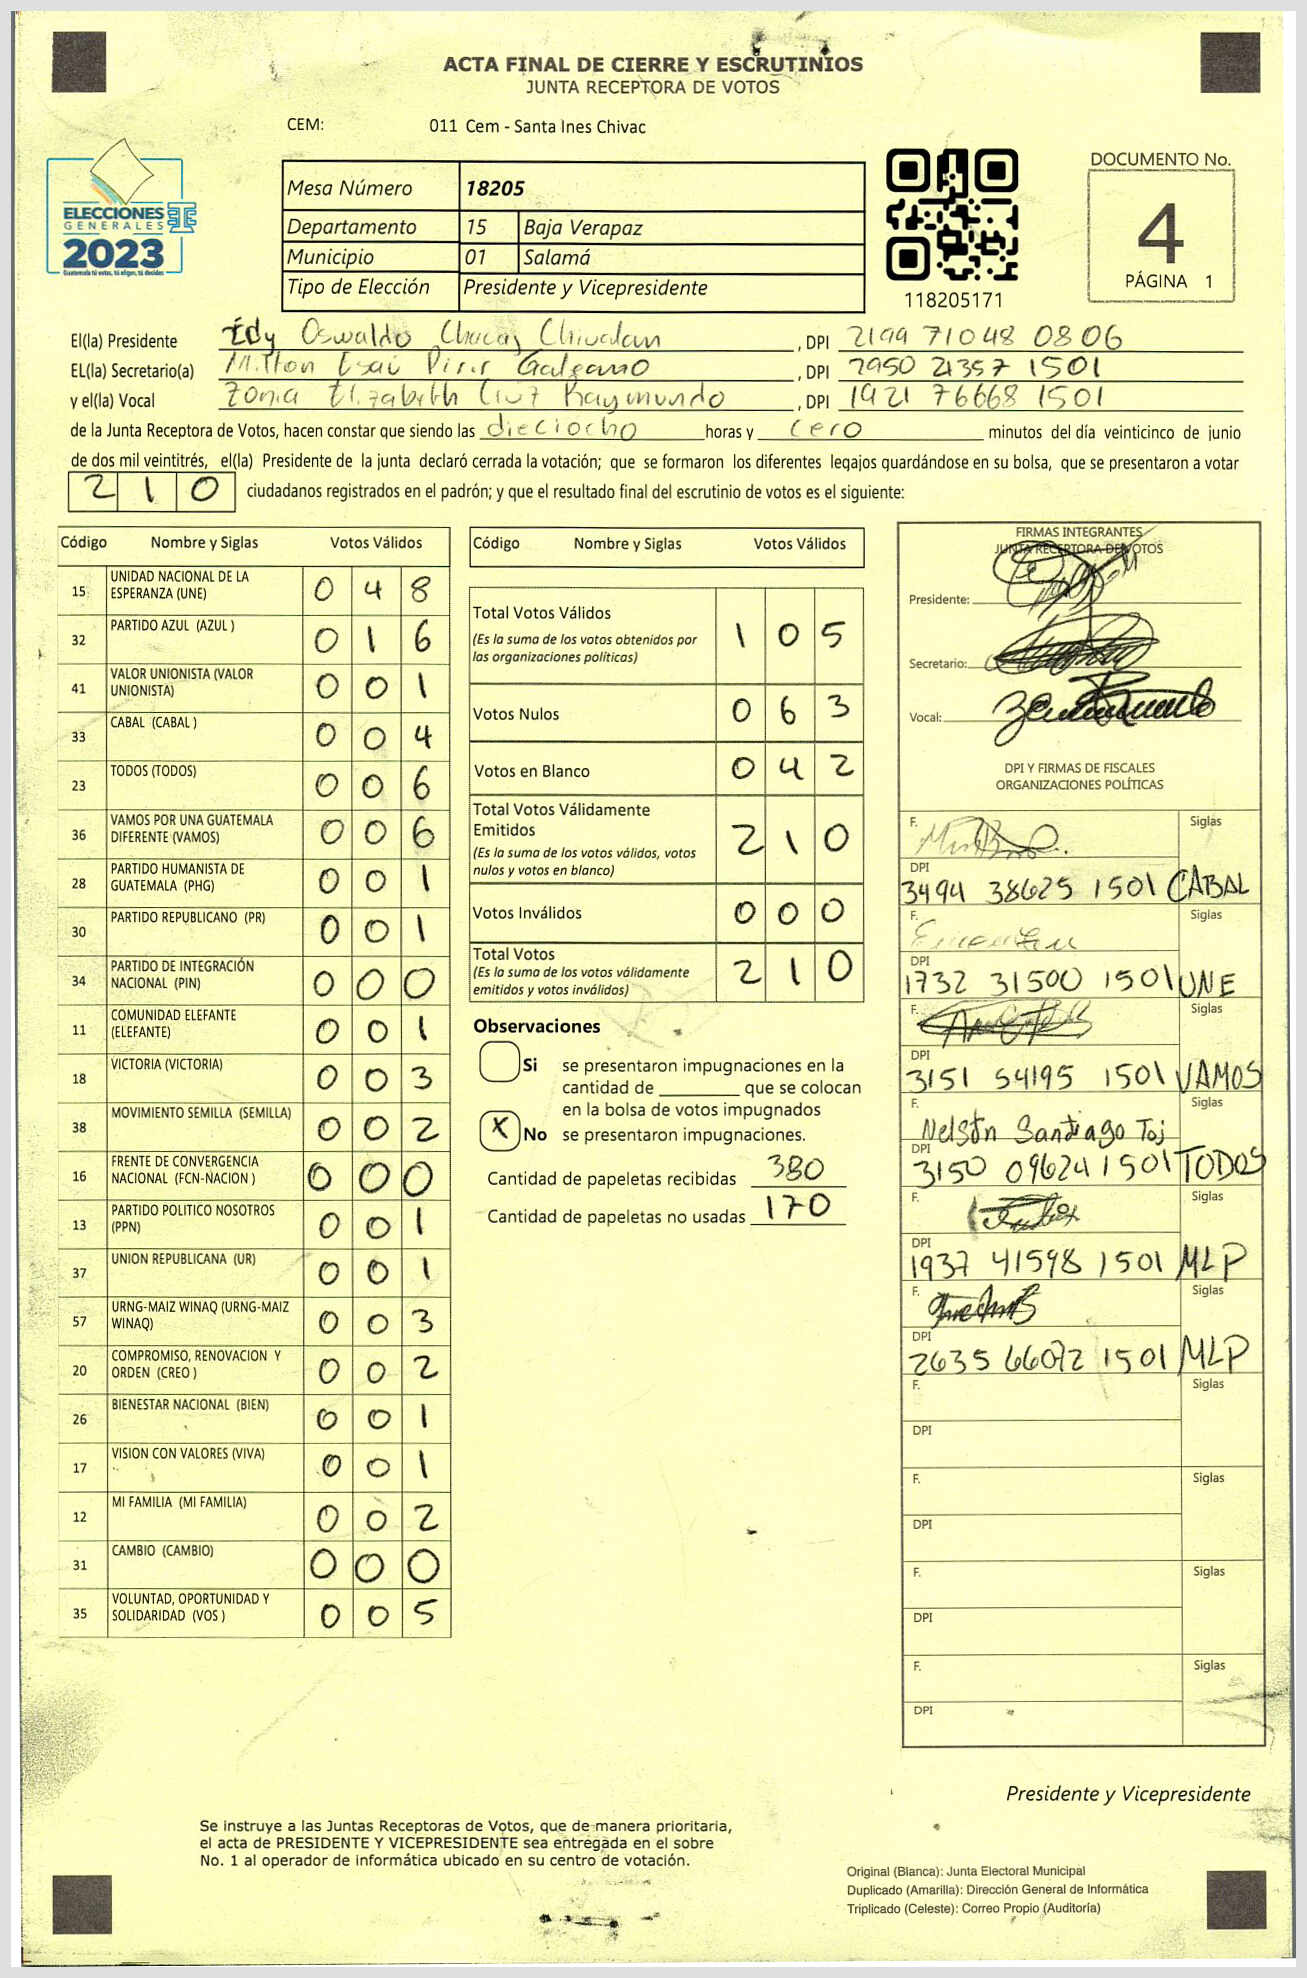 ACTA FINAL DE CIERRE Y ESCRUTINIOS
JUNTA RECEPTORA DE VOTOS
CEM: 011 Cem - Santa Ines Chivac
ELECCIONES
GENERALES
2023
Guatemala tú votas, tú eliges, tú decides
Mesa Número 18205
Departamento 15 Baja Verapaz
Municipio 01 Salamá
Tipo de Elección Presidente y Vicepresidente
118205171
DOCUMENTO No.
4
PÁGINA 1
El(la) Presidente Edy Oswaldo , DPI 2199 71048 0806
EL(la) Secretario(a) Milton Esaú , DPI 7950 21357 1501
y el(la) Vocal Zonia Elizabeth Cruz Raymundo , DPI 1921 76668 1501
de la Junta Receptora de Votos, hacen constar que siendo las dieciocho horas y cero minutos del día veinticinco de junio
de dos mil veintitrés, el(la) Presidente de la junta declaró cerrada la votación; que se formaron los diferentes legajos quardándose en su bolsa, que se presentaron a votar
210 ciudadanos registrados en el padrón; y que el resultado final del escrutinio de votos es el siguiente:
Código Nombre y Siglas Votos Válidos
15 UNIDAD NACIONAL DE LA ESPERANZA (UNE) 0 4 8
32 PARTIDO AZUL (AZUL ) 0 1 6
41 VALOR UNIONISTA (VALOR UNIONISTA) 0 0 1
33 CABAL (CABAL ) 0 0 4
23 TODOS (TODOS) 0 0 6
36 VAMOS POR UNA GUATEMALA DIFERENTE (VAMOS) 0 0 6
28 PARTIDO HUMANISTA DE GUATEMALA (PHG) 0 0 1
30 PARTIDO REPUBLICANO (PR) 0 0 1
34 PARTIDO DE INTEGRACIÓN NACIONAL (PIN) 0 0 0
11 COMUNIDAD ELEFANTE (ELEFANTE) 0 0 1
18 VICTORIA (VICTORIA) 0 0 3
38 MOVIMIENTO SEMILLA (SEMILLA) 0 0 2
16 FRENTE DE CONVERGENCIA NACIONAL (FCN-NACION ) 0 0 0
13 PARTIDO POLITICO NOSOTROS (PPN) 0 0 1
37 UNION REPUBLICANA (UR) 0 0 1
57 URNG-MAIZ WINAQ (URNG-MAIZ WINAQ) 0 0 3
20 COMPROMISO, RENOVACION Y ORDEN (CREO ) 0 0 2
26 BIENESTAR NACIONAL (BIEN) 0 0 1
17 VISION CON VALORES (VIVA) 0 0 1
12 MI FAMILIA (MI FAMILIA) 0 0 2
31 CAMBIO (CAMBIO) 0 0 0
35 VOLUNTAD, OPORTUNIDAD Y SOLIDARIDAD (VOS ) 0 0 5
Código Nombre y Siglas Votos Válidos
Total Votos Válidos 1 0 5
(Es la suma de los votos obtenidos por
las organizaciones políticas)
Votos Nulos 0 6 3
Votos en Blanco 0 4 2
Total Votos Válidamente
Emitidos 2 1 0
(Es la suma de los votos válidos, votos
nulos y votos en blanco)
Votos Inválidos 0 0 0
Total Votos 2 1 0
(Es la suma de los votos válidamente
emitidos y votos inválidos)
Observaciones
Si se presentaron impugnaciones en la
cantidad de ________ que se colocan
en la bolsa de votos impugnados
X No se presentaron impugnaciones.
Cantidad de papeletas recibidas 380
Cantidad de papeletas no usadas 170
FIRMAS INTEGRANTES
JUNTA RECEPTORA DE VOTOS
Presidente:
Secretario:
Vocal:
DPI Y FIRMAS DE FISCALES
ORGANIZACIONES POLÍTICAS
F. Siglas
DPI
3494 38625 1501 CABAL
F. Siglas
DPI
1732 31500 1501 UNE
F. Siglas
DPI
3151 54195 1501 VAMOS
F. Siglas
Nelson Santiago Toj
DPI
3150 09624 1501 TODOS
F. Siglas
DPI
1937 41598 1501 MLP
F. Siglas
DPI
2635 66072 1501 MLP
F. Siglas
DPI
F. Siglas
DPI
F. Siglas
DPI
F. Siglas
DPI
Presidente y Vicepresidente
Se instruye a las Juntas Receptoras de Votos, que de manera prioritaria,
el acta de PRESIDENTE Y VICEPRESIDENTE sea entregada en el sobre
No. 1 al operador de informática ubicado en su centro de votación.
Original (Blanca): Junta Electoral Municipal
Duplicado (Amarilla): Dirección General de Informática
Triplicado (Celeste): Correo Propio (Auditoría)